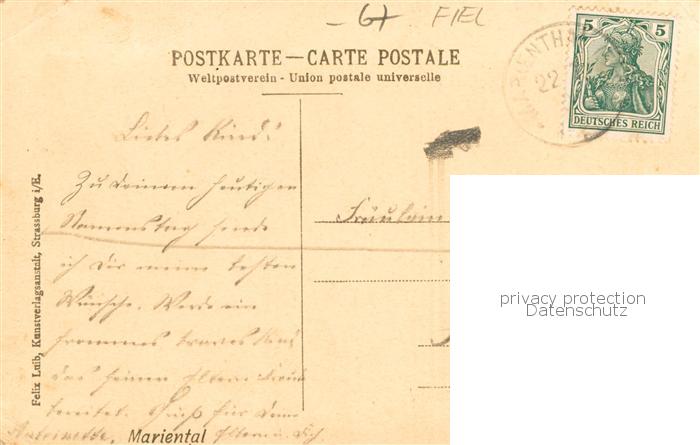 -67 FIEL
POSTKARTE—CARTE POSTALE
Weltpostverein - Union postale universelle
MARIENTHAL
22
5 5
DEUTSCHES REICH
Liebes Kind!
Zu deinem heutigen
Namenstag sende
ich dir meine besten
Wünsche. Werde ein
frommes braves Kind
das seinen Eltern Freude
bereitet. Gruß für deine
Antoinette, Eltern u. dich.
Fräulein
Mariental
Felix Luib, Kunstverlagsanstalt, Strassburg i/E.
privacy protection
Datenschutz